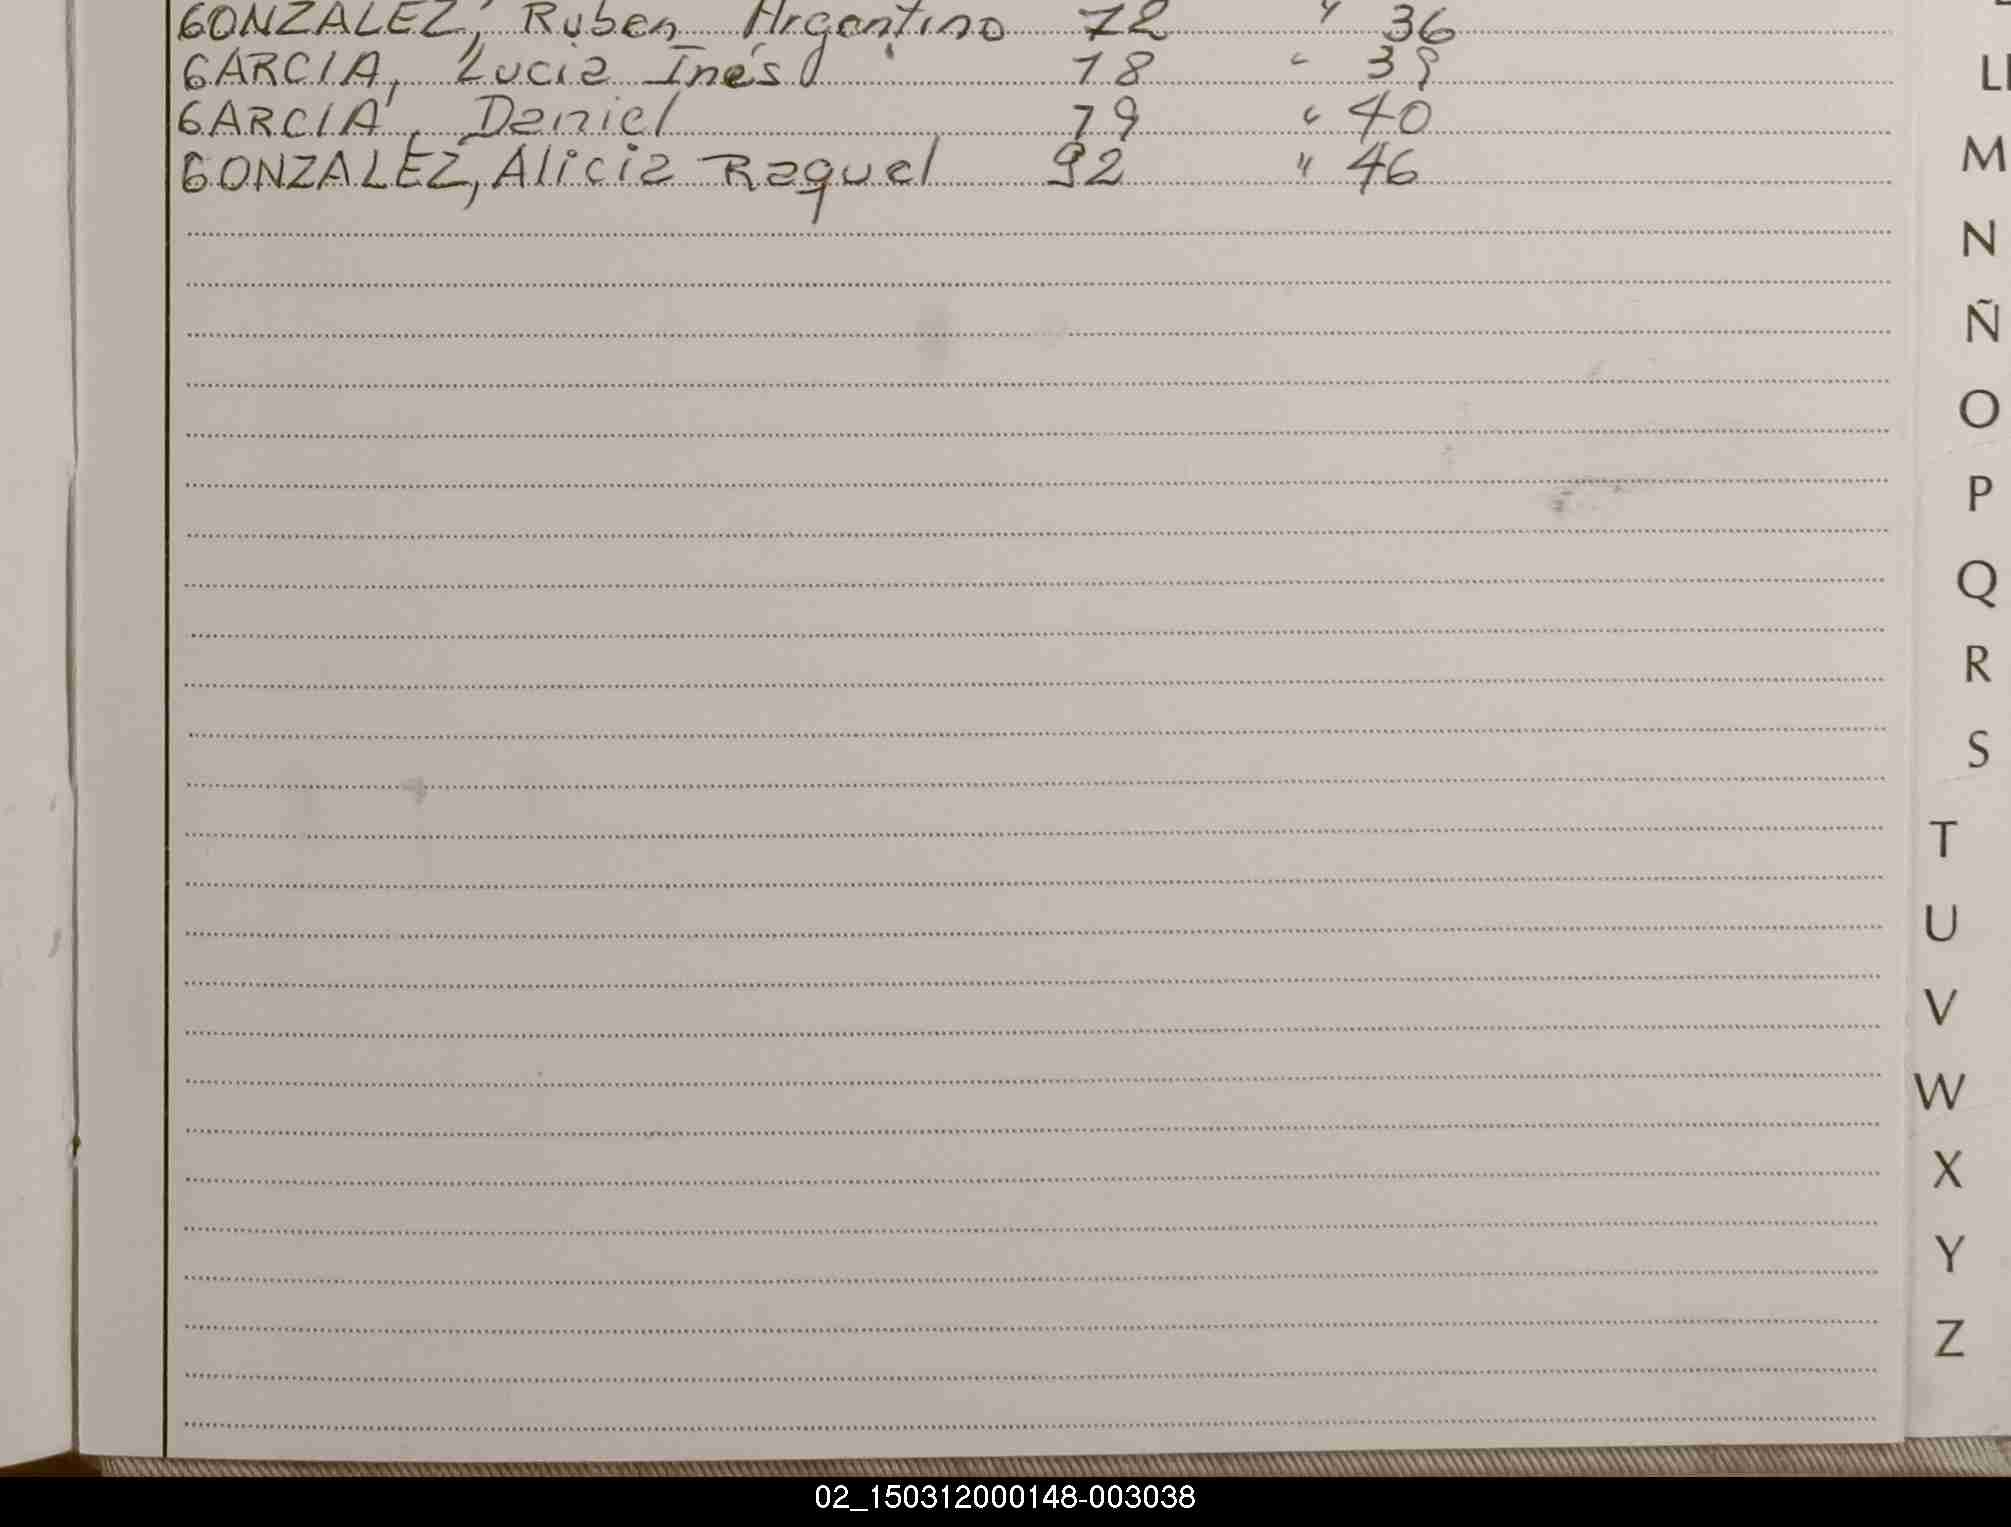 GONZALEZ, Ruben Argentino 72 " 36
GARCIA, Lucia Inés 78 " 39
GARCIA, Daniel 79 " 40
GONZALEZ, Alicia Raquel 92 " 46
M
N
Ñ
O
P
Q
R
S
T
U
V
W
X
Y
Z
02_150312000148-003038